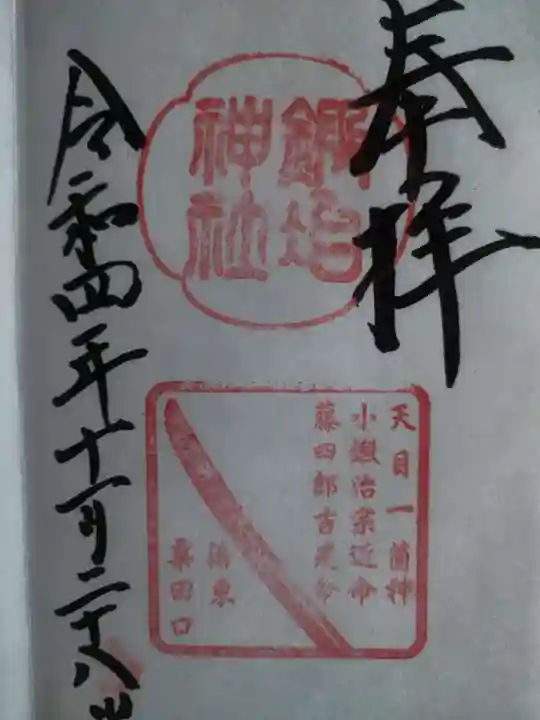 奉拝
鍛冶
神社
天目一箇神
小鍛冶宗近命
藤四郎吉光命
粟田口
令和四年十一月二十八日